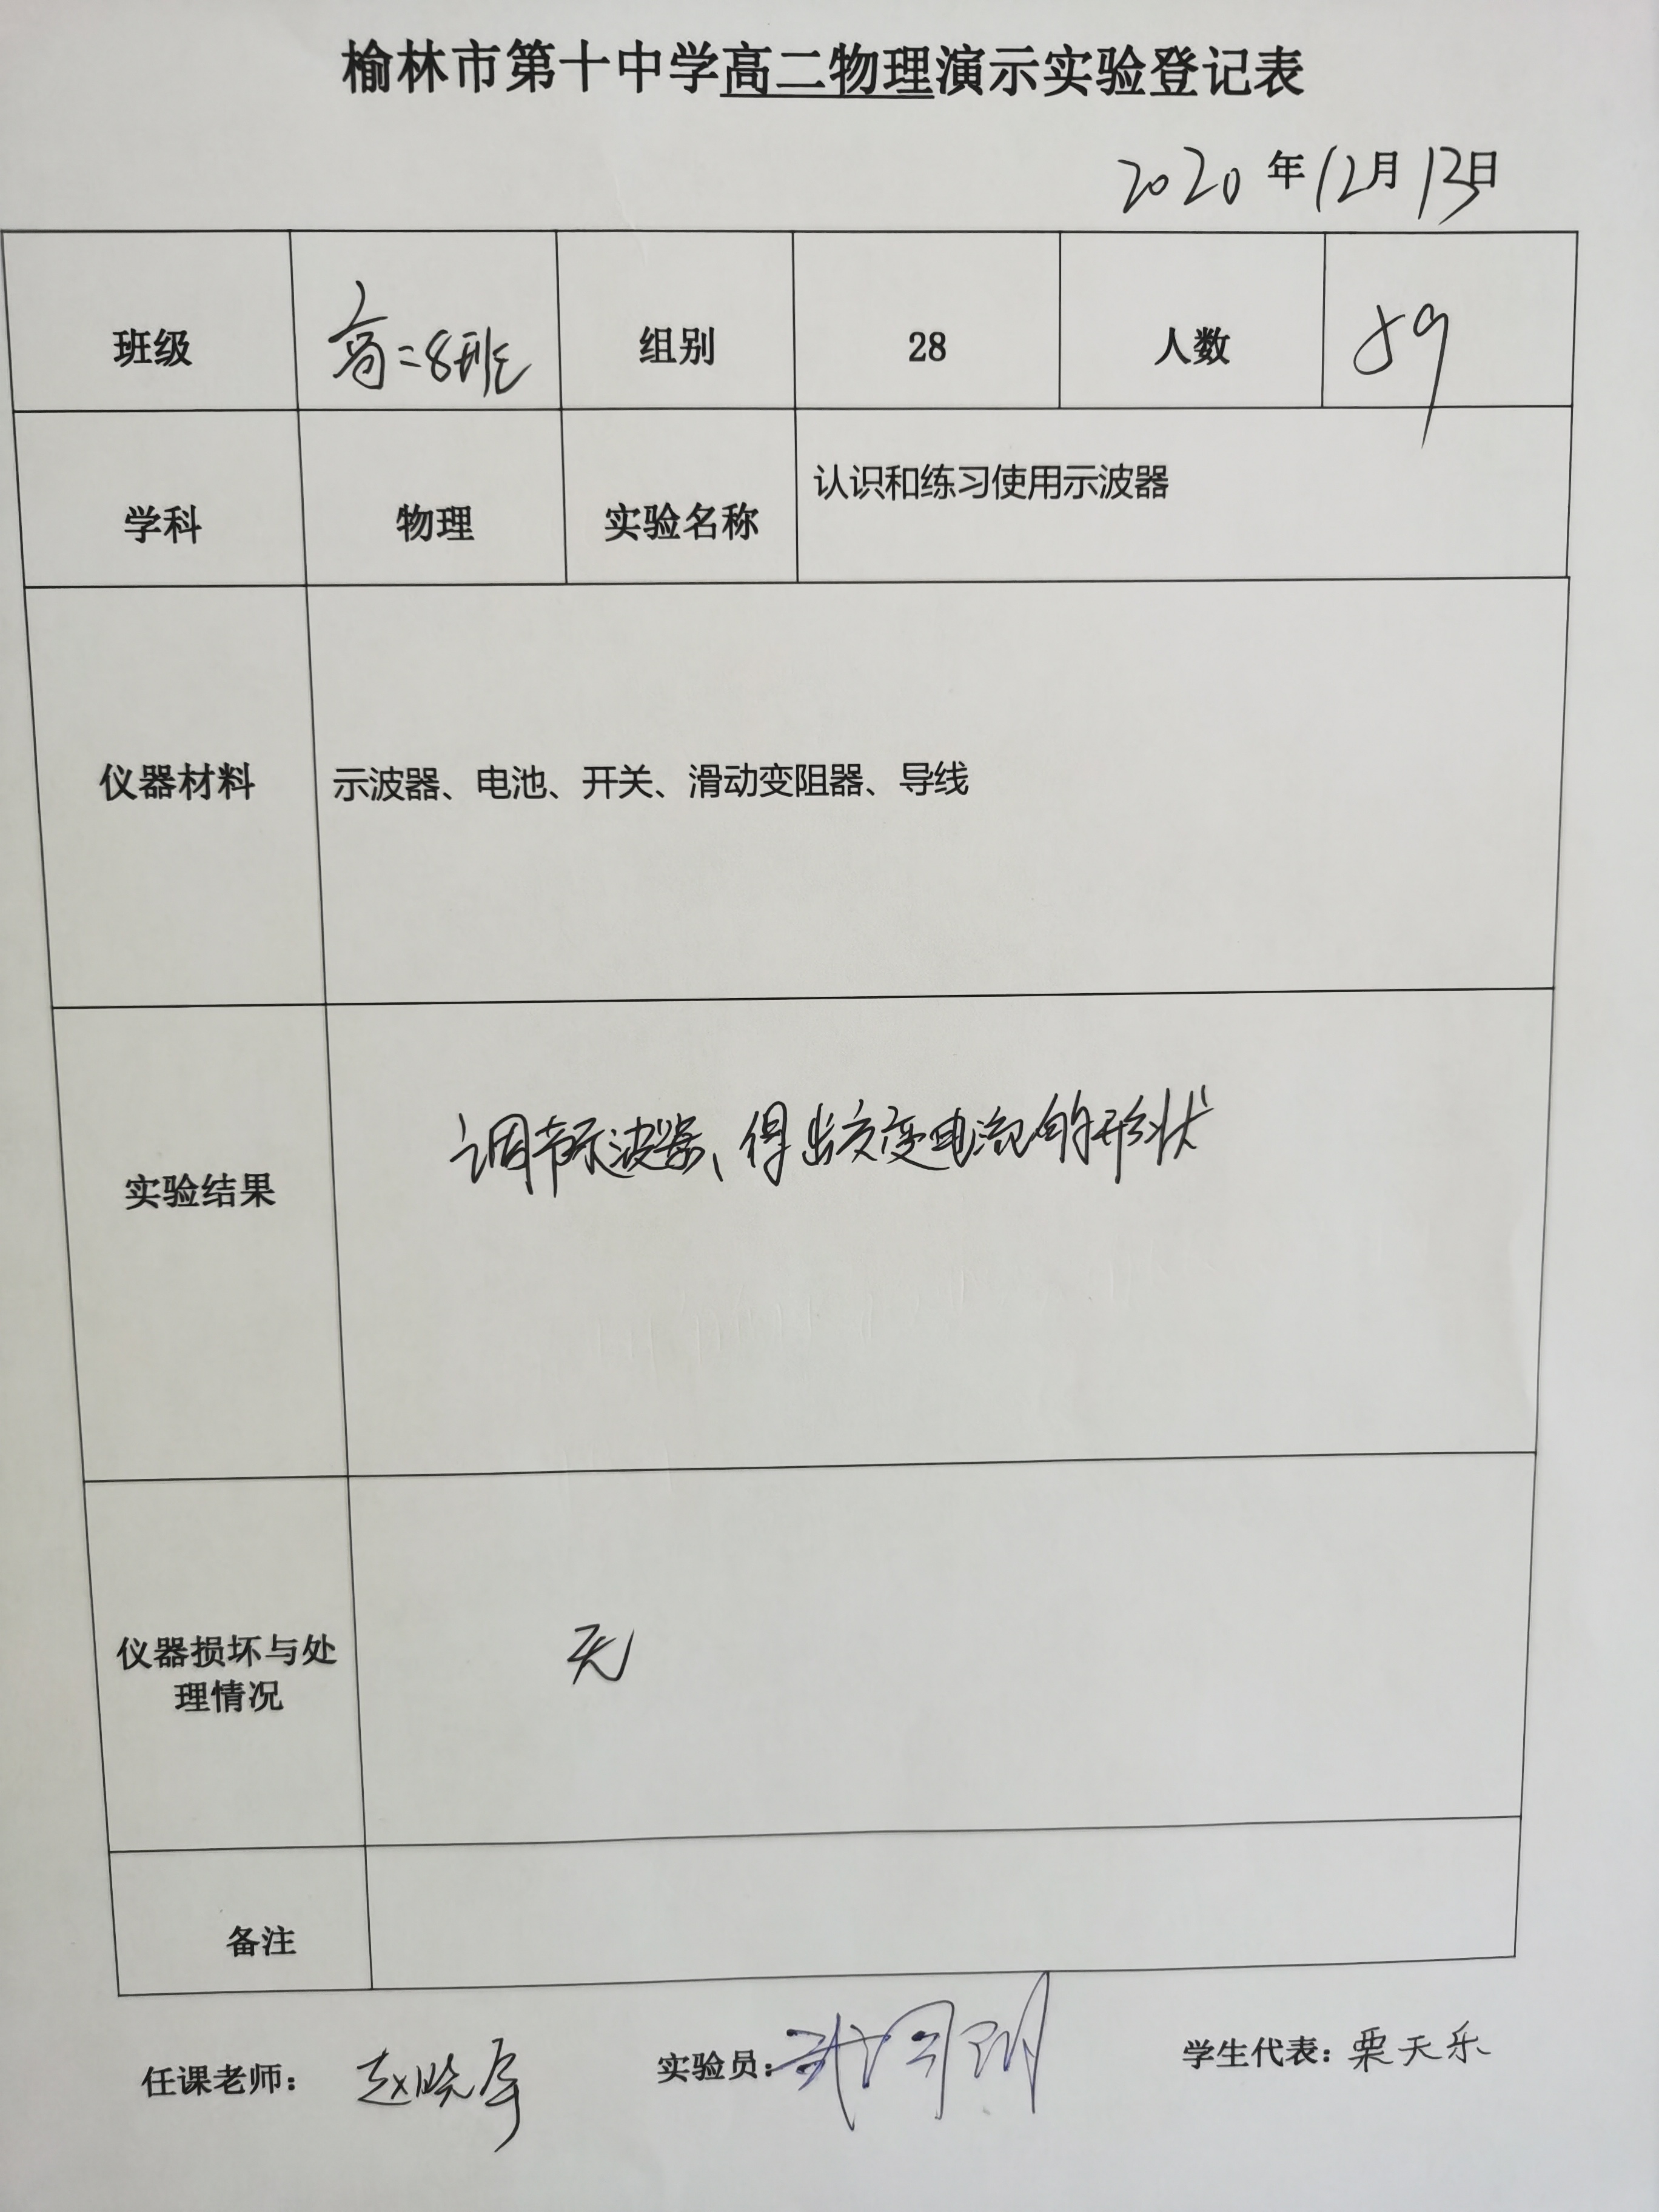 榆林市第十中学高二物理演示实验登记表
2020年12月13日
班级 高二8班 组别 28 人数 59
学科 物理 实验名称 认识和练习使用示波器
仪器材料 示波器、电池、开关、滑动变阻器、导线
实验结果 调节示波器、得出交变电流的形状
仪器损坏与处
理情况 无
备注
任课老师: 赵晓宇 实验员: 学生代表: 栗天乐